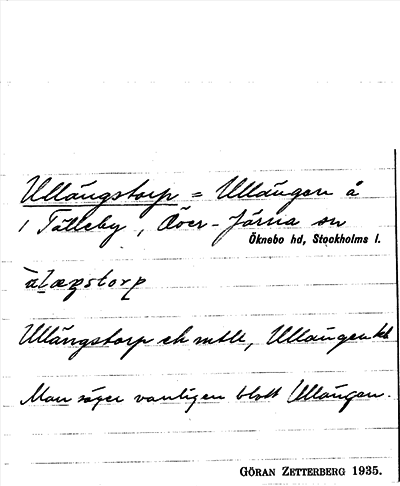 Ullängstorp = Ullängen å
1 Tälleby, Över-Järna sn
Öknebo hd, Stockholms l.
Ullängstorp ek mtl, Ullängen
Man säger vanligen blott Ullängen.
GÖRAN ZETTERBERG 1935.